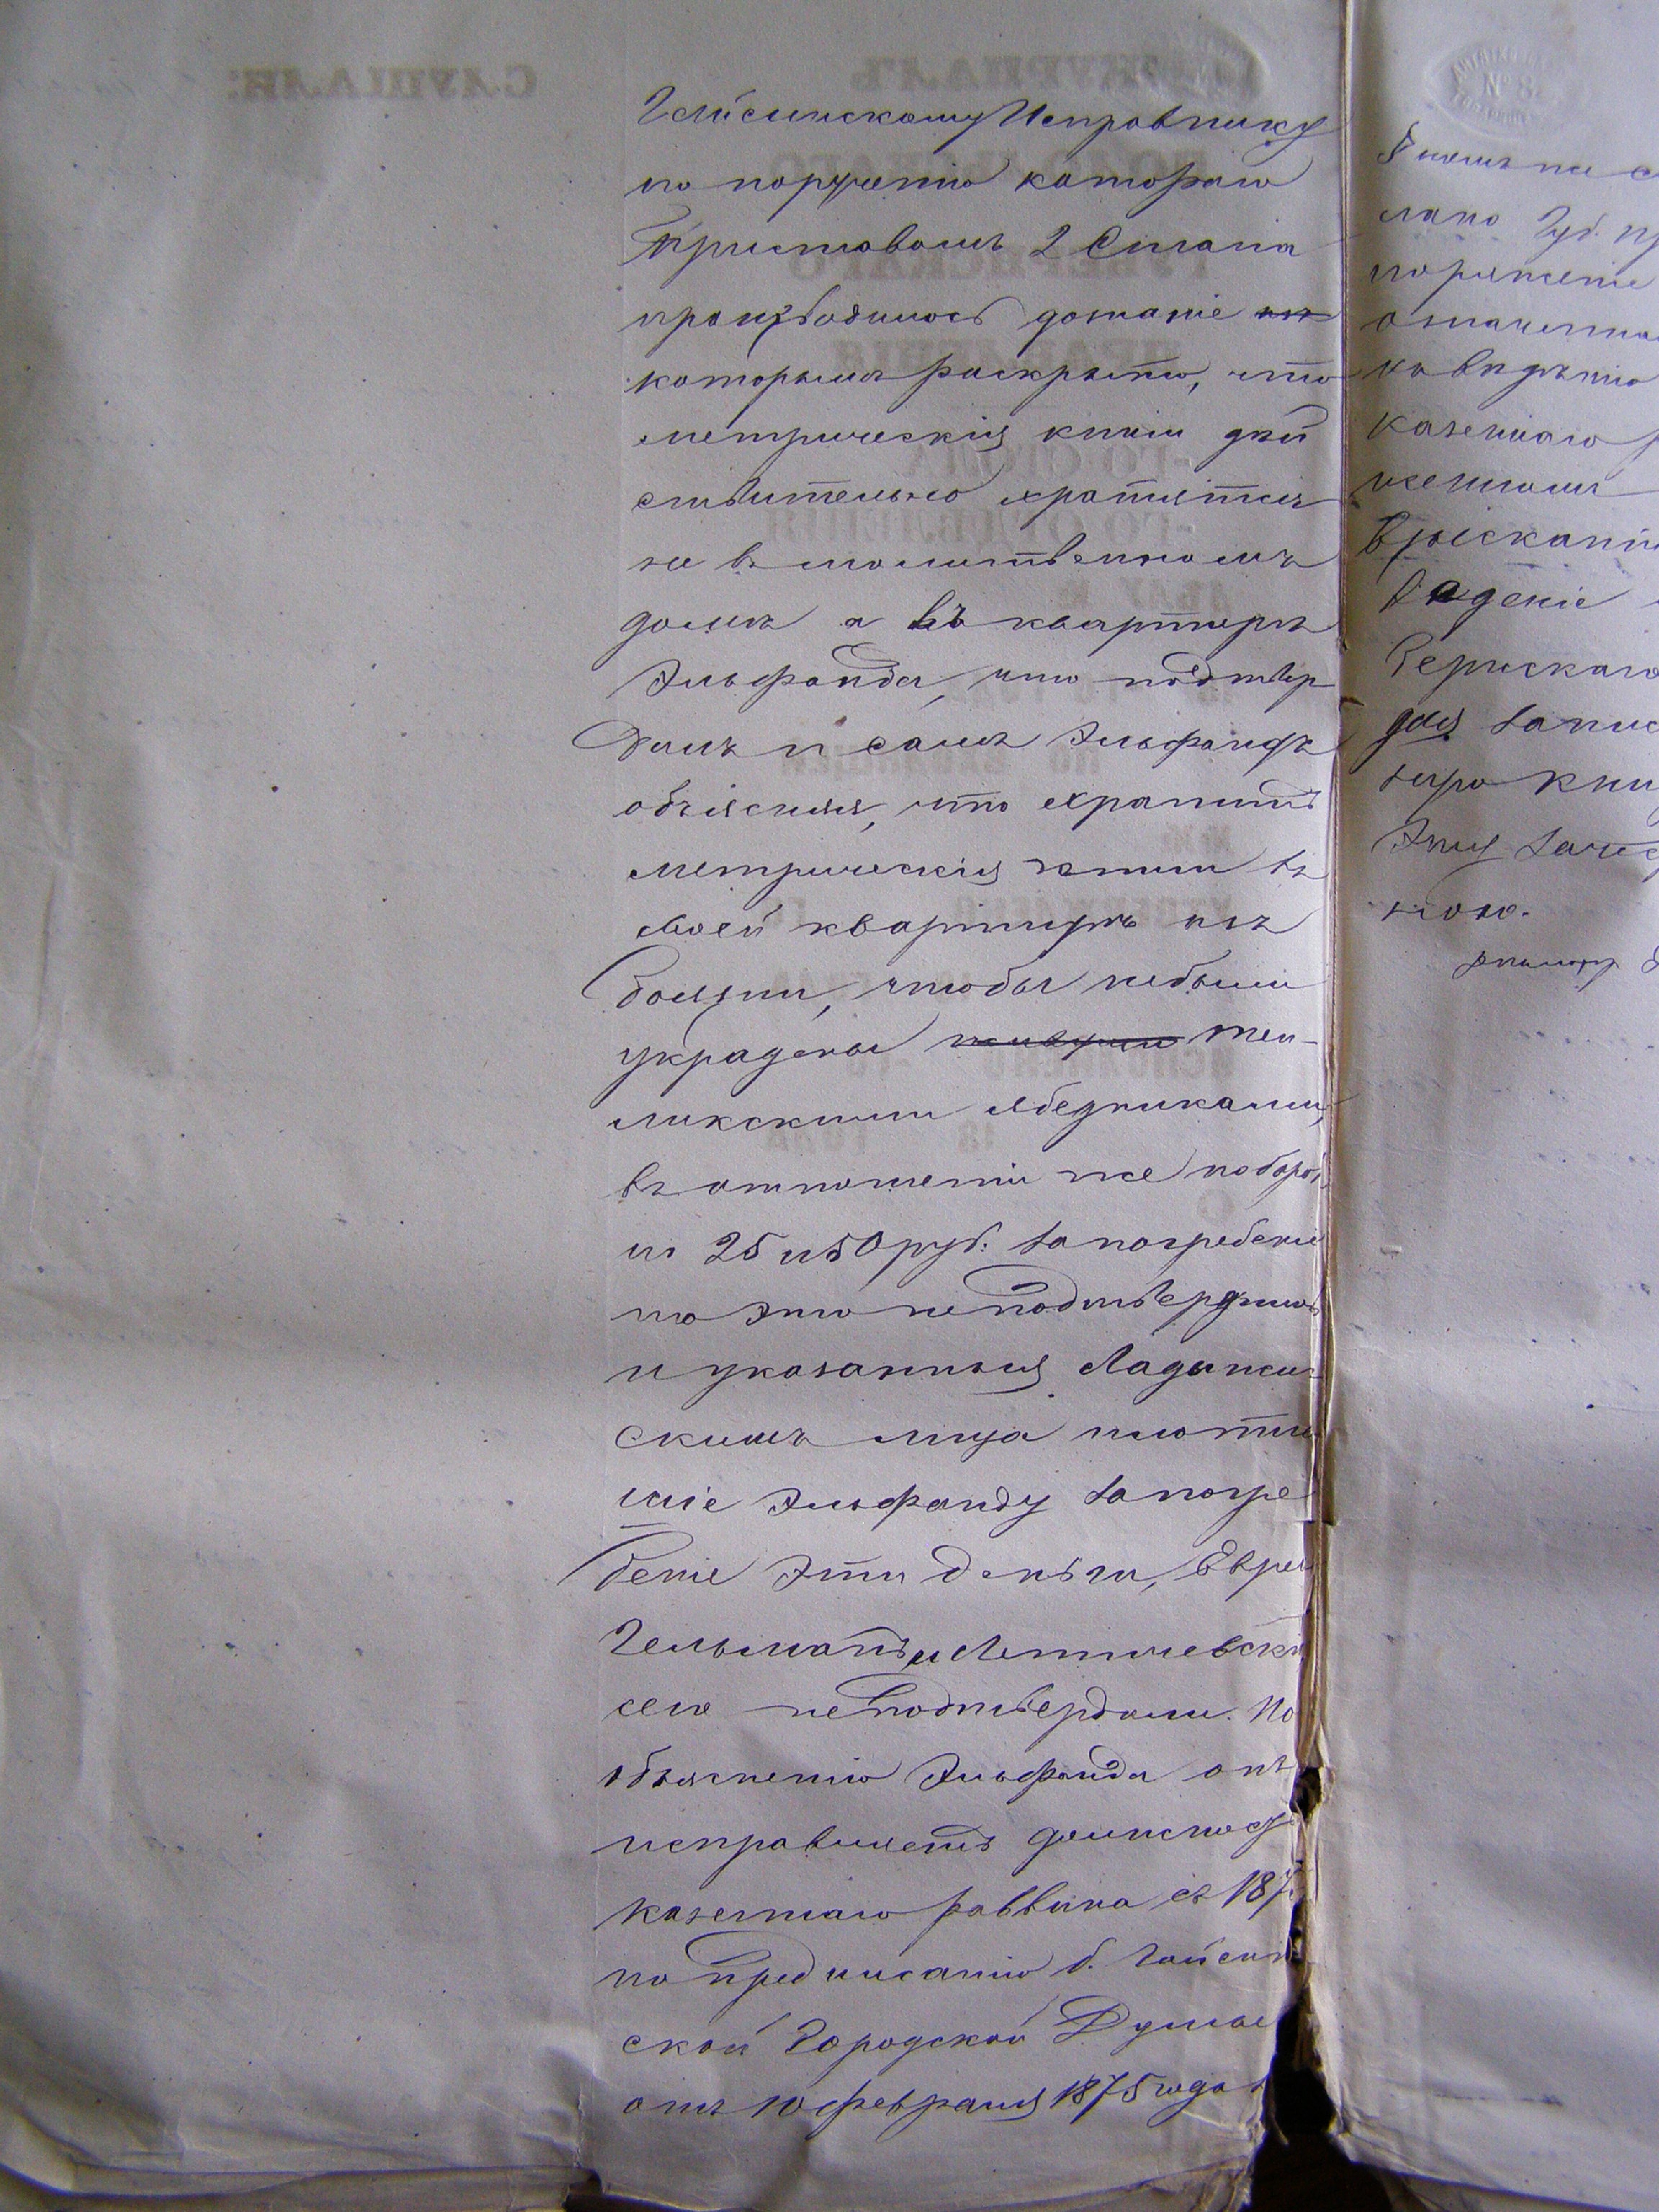 Гайсинскому Исправнику
по порученію котораго
Приставомъ 2 Стана
производилось дознаніе
которымъ раскрыто, что
метрическія книги дѣй
ствительно хранятся
не въ молитвенномъ
домѣ а въ квартирѣ
Эльфанда, что подтвер
дилъ и самъ Эльфандъ
объясняя, что хранитъ
метрическія книги въ
своей квартирѣ изъ
боязни, чтобы небыли
украдены теп-
ликскими ябедниками,
въ отношеніи же поборовъ
по 25 и 50 руб. за погребеніе
то это неподтвердилось
и указанныя Ладыжин
скимъ лица платив
шіе Эльфанду за погре
беніе эти деньги, Евреи
Гельманъ и Летичевскій
сего неподтвердили. По
объясненію Эльфанда онъ
исправляетъ должность
казеннаго раввина съ 187
по предписанію б. Гайсин
ской Городской Думы
отъ 10 февраля 1875 года з
лано Губ. пр
означенна
къ вѣдѣнію
казеннаго р
взыскані
веденіе
Верискаго
для запис
Эту
ною.